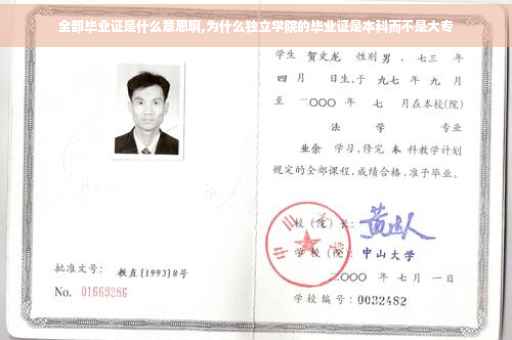 全部毕业证是什么意思啊,为什么独立学院的毕业证是本科而不是大专
学生 贺文龙 性别 男 、七三 年
四 月 日生,于 九七 年 九 月
至 二〇〇〇 年 七 月在本校(院)
法 学 专业
业余 学习,修完 本 科教学计划
规定的全部课程,成绩合格,准予毕业。
校(院)长:
学校(院): 中山大学
二〇〇〇 年 七 月 一 日
学校编号: 0032482
批准文号: 教直[1993]8号
No. 01669286